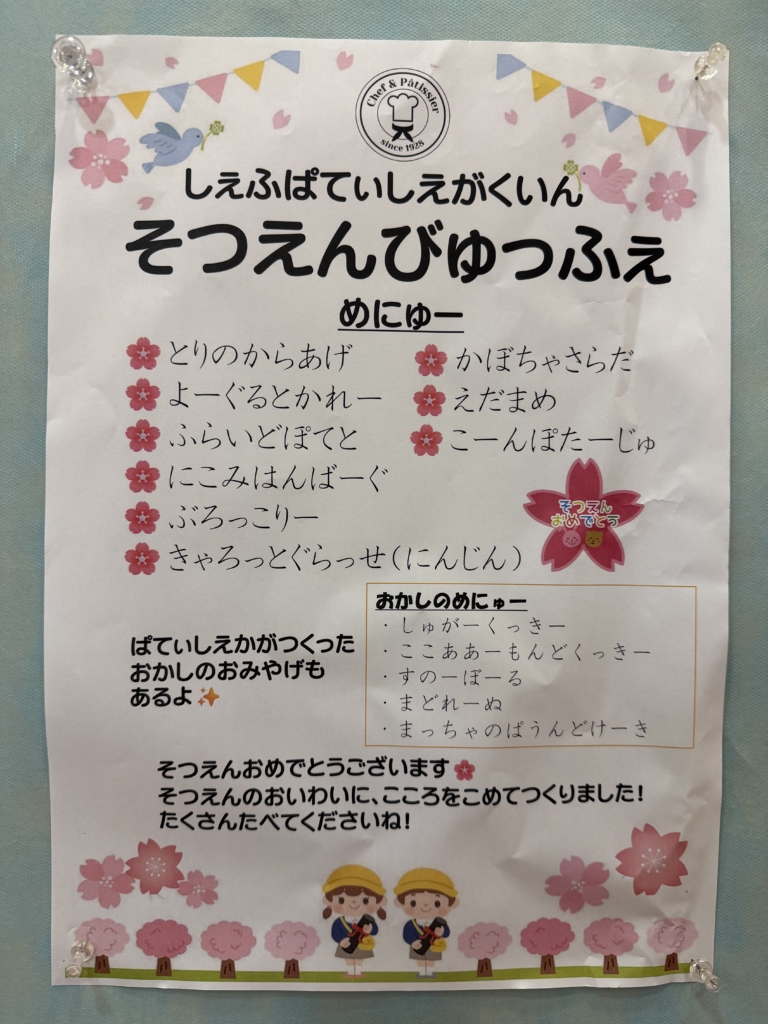 Chef & Pâtissier
since 1928
しぇふぱてぃしえがくいん
そつえんびゅっふぇ
めにゅー
とりのからあげ
よーぐるとかれー
ふらいどぽてと
にこみはんばーぐ
ぶろっこりー
きゃろっとぐらっせ(にんじん)
かぼちゃさらだ
えだまめ
こーんぽたーじゅ
そつえん
おめでとう
ぱてぃしえかがつくった
おかしのおみやげも
あるよ✨
おかしのめにゅー
・しゅがーくっきー
・ここああーもんどくっきー
・すのーぼーる
・まどれーぬ
・まっちゃのぱうんどけーき
そつえんおめでとうございます🌸
そつえんのおいわいに、こころをこめてつくりました!
たくさんたべてくださいね!